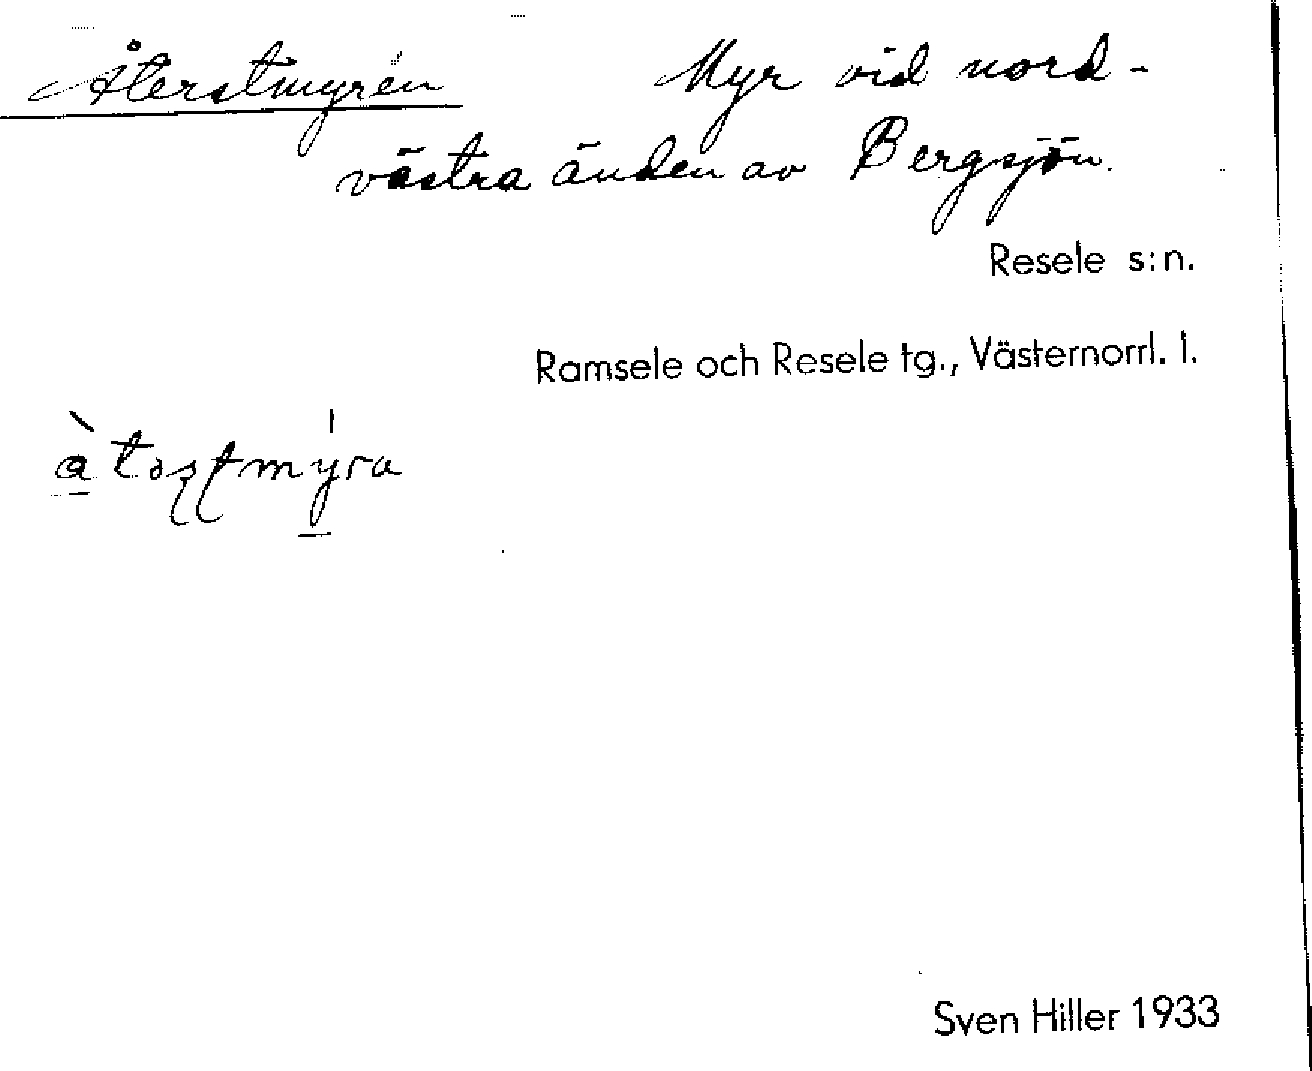 Återstmyren Myr vid nord-
västra änden av Bergsjön.
Resele s:n.
Ramsele och Resele tg., Västernorrl. l.
Sven Hiller 1933